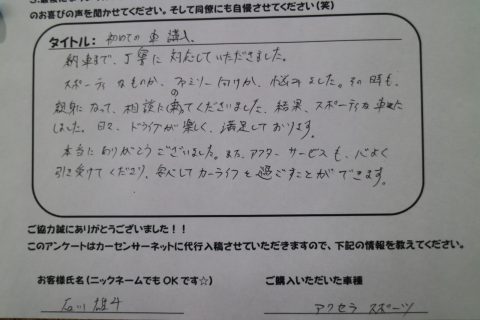 のお喜びの声を聞かせてください。そして同僚にも自慢させてください(笑)
タイトル: 初めての車購入
納車まで、丁寧に対応していただきました。
スポーティなものか、ファミリー向けか、悩みました。その時も、
親身になって、相談にのってくださいました。結果、スポーティな車に
しました。日々、ドライブが楽しく、満足しております。
本当にありがとうございました。また、アフターサービスも、心よく
引き受けてくださり、安心してカーライフを過ごすことができます。
ご協力誠にありがとうございました!!
このアンケートはカーセンサーネットに代行入稿させていただきますので、下記の情報を教えてください。
お客様氏名(ニックネームでもOKです☆)
ご購入いただいた車種
石川 雄斗
アクセラ スポーツ